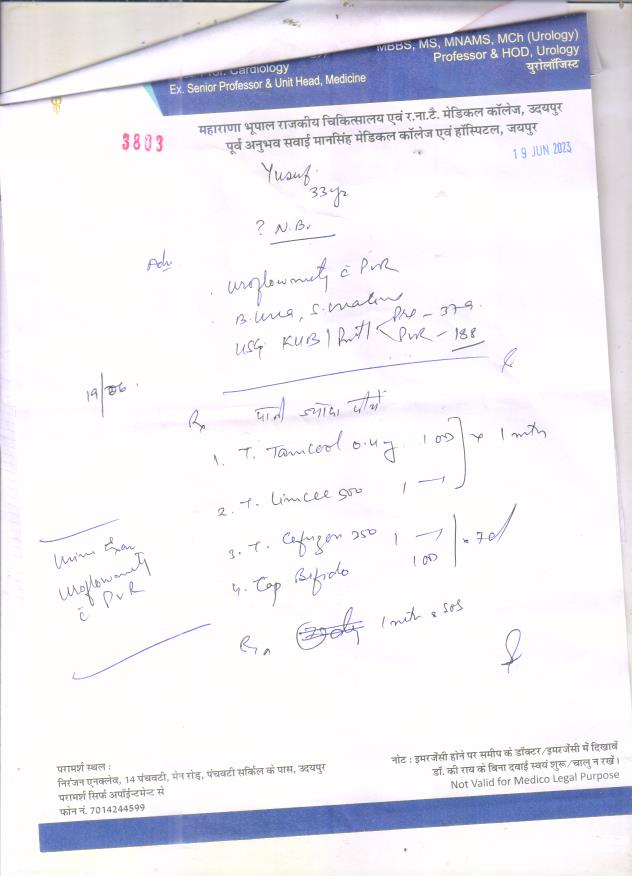 Cardiology
Ex. Senior Professor & Unit Head, Medicine
MBBS, MS, MNAMS, MCh (Urology)
Professor & HOD, Urology
युरोलॉजिस्ट
महाराणा भूपाल राजकीय चिकित्सालय एवं र.ना.टै. मेडिकल कॉलेज, उदयपुर
पूर्व अनुभव सवाई मानसिंह मेडिकल कॉलेज एवं हॉस्पिटल, जयपुर
3803
19 JUN 2023
Yusuf
33yr
? N.B.
Adv.
uroflowmetry c̄ PVR
B. Urea, S. Creatinine
USG KUB / Pre - 379
PVR - 188
19/06.
Rx पानी ज्यादा पीयें
1. T. Tamcool 0.4mg 1 OD x 1 mth
2. T. Limcee 500 1
3. T. 250 1 x 7d
4. Cap Bifido 1 OD
Urine Exam
uroflowmetry
c̄ PVR
1 mth & SOS
परामर्श स्थल :
निरंजन एनक्लेव, 14 पंचवटी, मेन रोड़, पंचवटी सर्किल के पास, उदयपुर
परामर्श सिर्फ अपॉईन्टमेन्ट से
फोन नं. 7014244599
नोट : इमरजेंसी होने पर समीप के डॉक्टर/इमरजेंसी में दिखावें
डॉ. की राय के बिना दवाई स्वयं शुरू/चालु न रखें।
Not Valid for Medico Legal Purpose